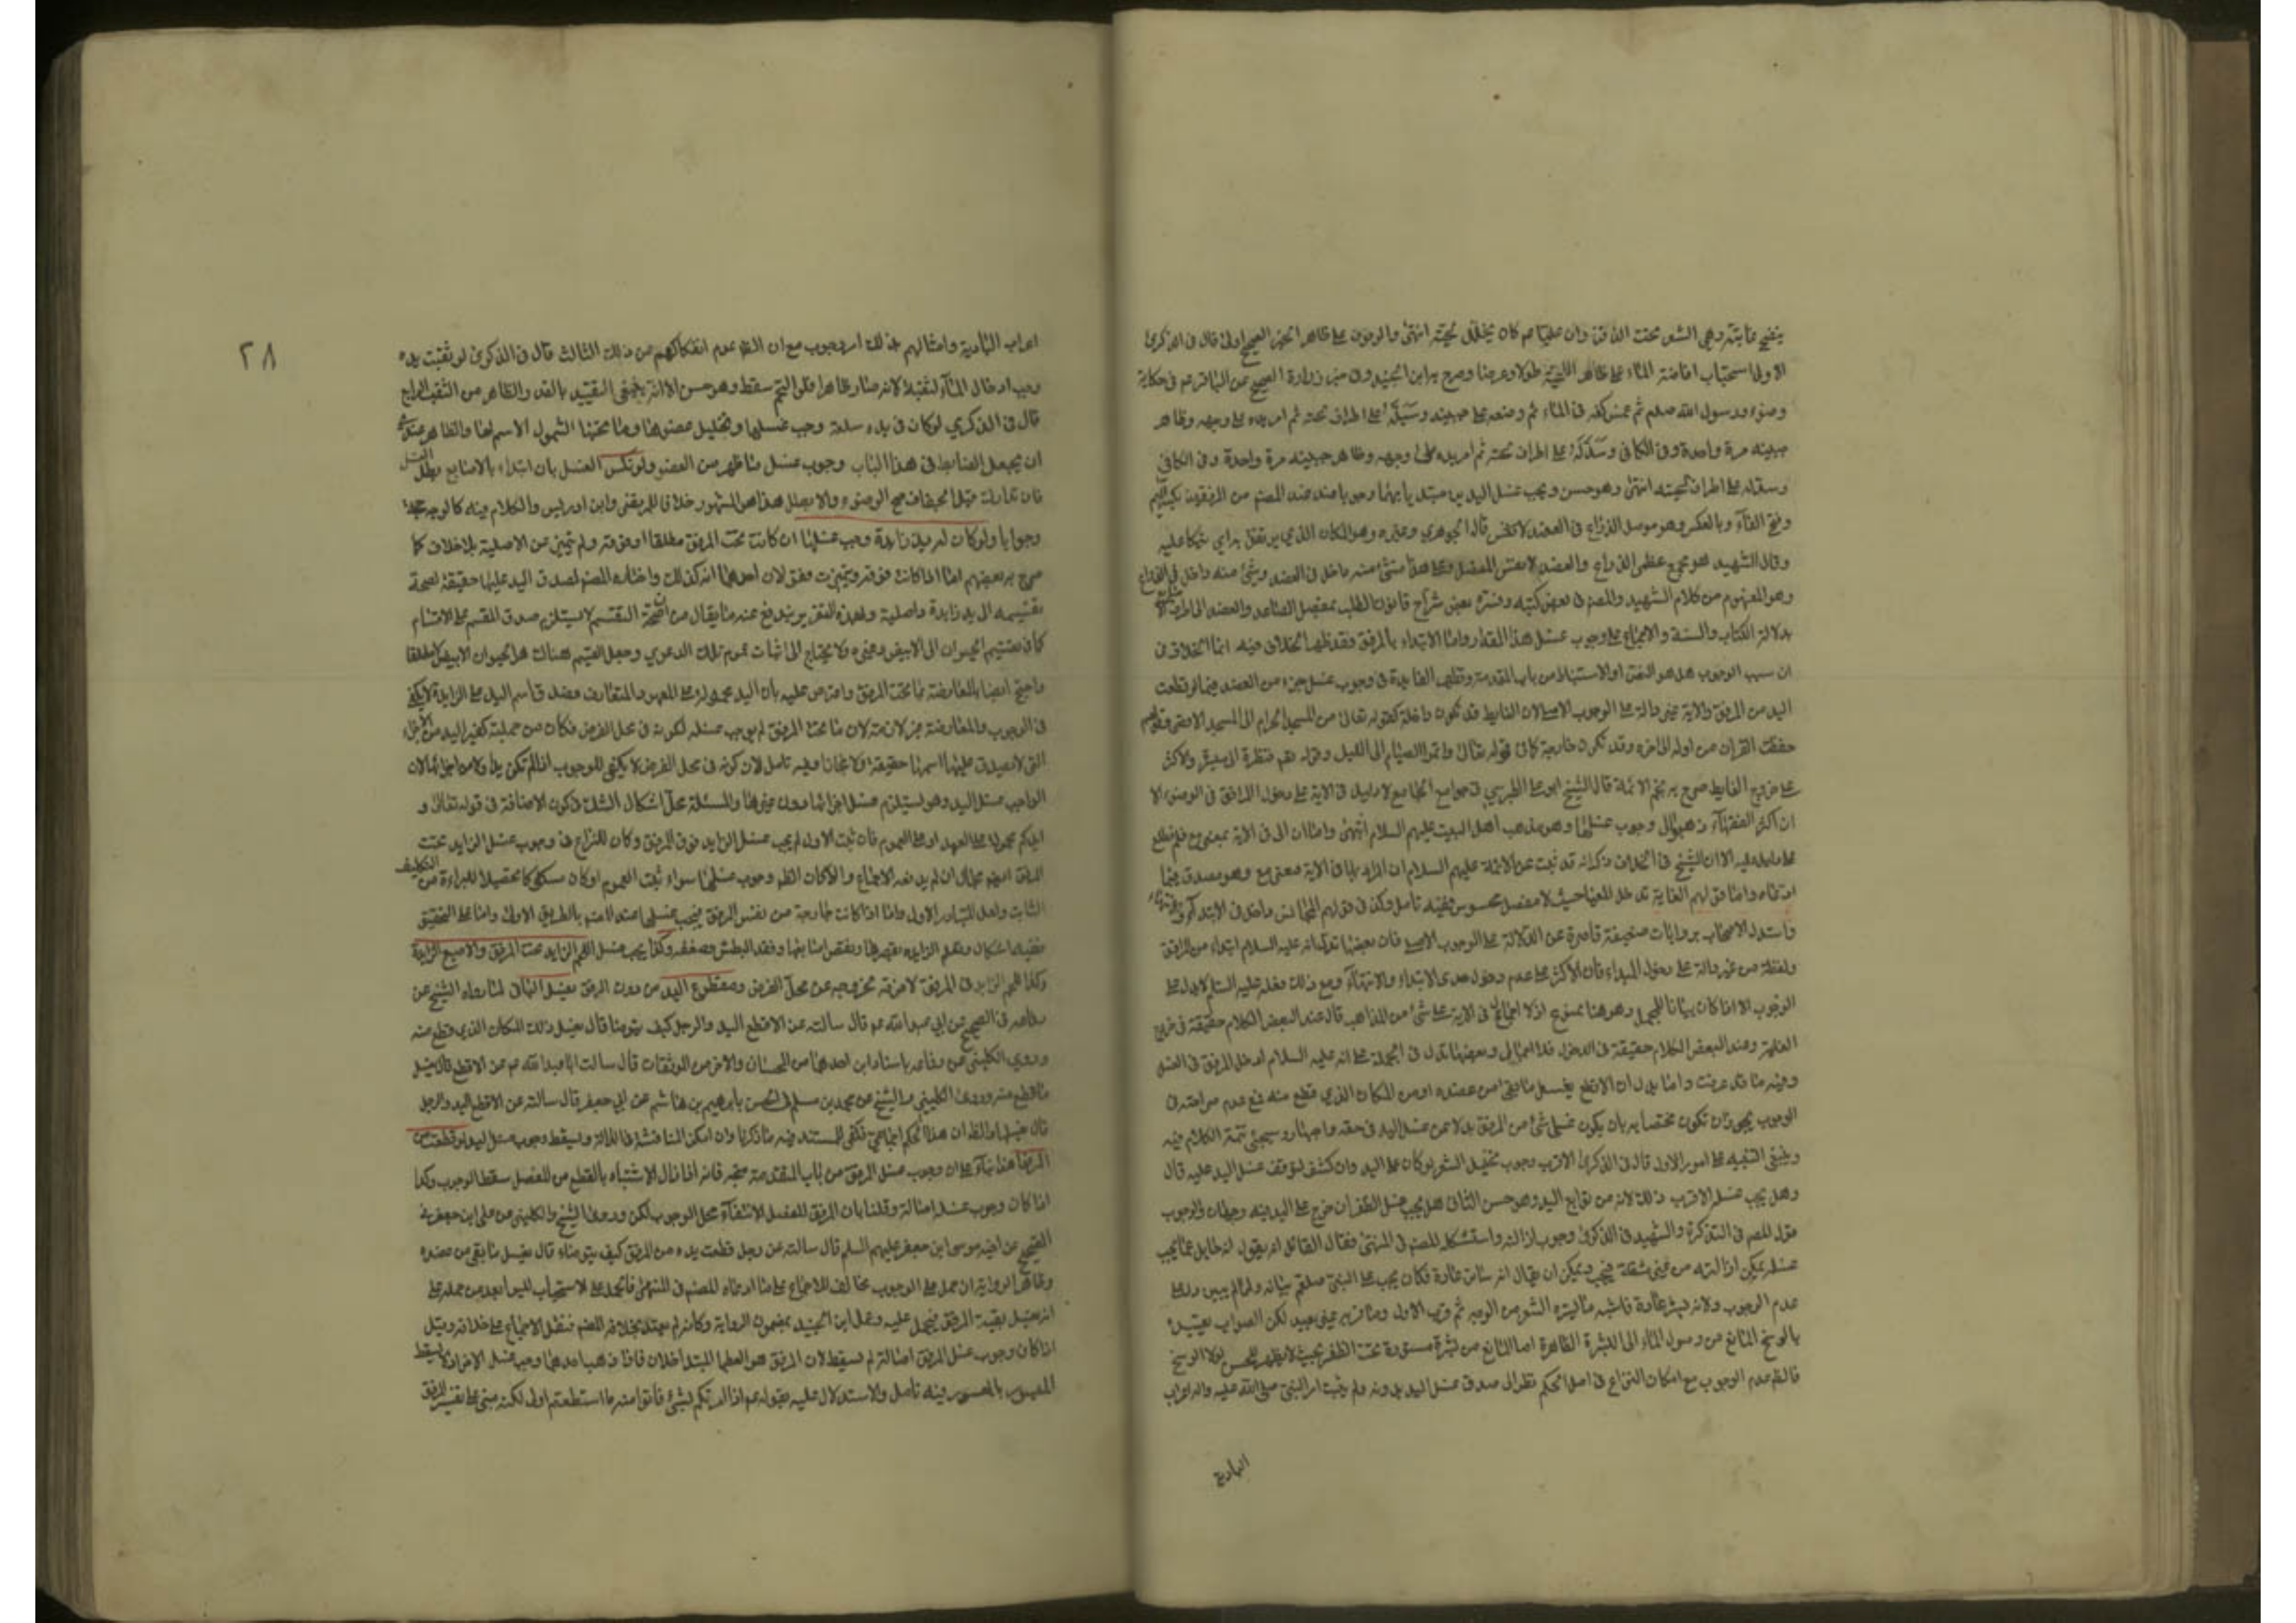 ينضح غابته وهي الشعر تحت الذقن وان عليا عم كان يخلل لحيته انتهى والوقوف على ظاهر الخبر الصحيح اولى قال في الذكرى
الاولى استحباب افاضة الماء على ظاهر اللحية طولا وعرضا وصرح به ابن الجنيد وفي خبر زرارة الصحيح عن الباقر عم في حكاية
وضوء رسول الله صلعم ثم غمس كفه في الماء ثم وضعه على جبينه وسيله على اطراف لحيته ثم امر يده على وجهه وظاهر
جبينه مرة واحدة وفي الكافي وسدله على اطراف لحيته ثم امر يده على وجهه وظاهر جبينه مرة واحدة وفي الكافي
وسدله على اطراف لحيته انتهى وهو حسن ويجب غسل اليدين مبتديا بهما وجوبا عند المصنف من المرفقين بكسر الميم
وفتح الفاء وبالعكس وهو موصل الذراع في العضد قال الجوهري وغيره وهو المكان الذي يرتفق به اي يتكا عليه
وقال الشهيد هو مجمع عظمي الذراع والعضد لا نفس المفصل وعلى هذا شيء منه داخل في العضد وشيء منه داخل في الذراع
وهو المفهوم من كلام الشهيد والمصنف في بعض كتبه وفسره بعض شراح قانون الطب بمفصل الساعد والعضد
بدلالة الكتاب والسنة والاجماع على وجوب غسل هذا القدر واما الابتداء بالمرفق فقد ظهر الخلاف فيه انما الخلاف في
ان سبب الوجوب هل هو النص او الاستنباط من باب المقدمة وتظهر الفايدة في وجوب غسل جزء من العضد فيما لو قطعت
اليد من المرفق والاية غير دالة على الوجوب الاصلي لان الغاية قد تكون داخلة كقوله تعالى من المسجد الحرام الى المسجد الاقصى وقولهم
حفظت القران من اوله الى اخره وقد تكون خارجة كما في قوله تعالى واتموا الصيام الى الليل وقوله تعم فنظرة الى ميسرة ولاكثر
على خروج الغاية صرح به نجم الائمة قال الشيخ ابو علي الطبرسي في جوامع الجامع لا دليل في الاية على دخول المرافق في الوضوء الا
ان اكثر الفقهاء ذهبوا الى وجوب غسلها وهو مذهب اهل البيت عليهم السلام انتهى واما ان الى في الاية بمعنى مع فلم نطلع
على دليل عليه الا ان الشيخ في الخلاف ذكر انه قد ثبت عن الائمة عليهم السلام ان المراد بالى في الاية معنى مع وهو مصدق فيما
ادعاه واما قولهم الغاية تدخل المغيا حيث لا مفصل محسوس ففيه تامل وكذا في قولهم
واستدل الاصحاب بروايات ضعيفة قاصرة عن الدلالة على الوجوب الاصلي فان بعضها تدل انه عليه السلام ابتداء من المرافق
ولفظة من غير دالة على دخول المبداء فان الاكثر على عدم دخول حدي الابتداء والانتهاء ومع ذلك فعله عليه السلام لا يدل على
الوجوب الا اذا كان بيانا للمجمل وهو هنا ممنوع اذ لا اجمال في الاية على شيء من المذاهب قال عند البعض الكلام حقيقة في خروج
الغاية وعند البعض الكلام حقيقة في الدخول فلا اجمال وبعضها تدل في الجملة على انه عليه السلام ادخل المرفق في الغسل
وفيه ما قد عرفت واما بدل ان الاقطع يغسل ما بقي من عضده او من المكان الذي قطع منه فمع عدم صراحته في
الوجوب يجوز ان تكون مختصا به بان يكون غسل شيء من المرفق بدلا عن غسل اليد في حقه وسيجئ تتمة الكلام فيه
وينبغي التنبيه على امور الاول قال في الذكرى الاقرب وجوب تخليل الشعر لو كان على اليد وان كثف لتوقف غسل اليد عليه قال
وهل يجب غسله الاقرب ذلك لانه من توابع اليد وهو حسن الثاني هل يجب غسل الظفر ان خرج على اليد فيه وجهان والوجوب
قول المصنف في التذكرة والشهيد في الذكرى وجوب ازالته واستشكله المصنف في المنتهى فقال القائل ان يقول انه حايل عما يجب
غسله يمكن ازالته من غير مشقة فيجب ويمكن ان يقال انه ساتر عادة فكان يجب على النبي صلعم بيانه ولما لم يبين دل على
عدم الوجوب ولانه يستر عادة فاشبه ما يستره الشعر من الوجه ثم قرب الاول وما قربه غير بعيد لكن الصواب تقييده
بالوسخ المانع من وصول الماء الى البشرة الظاهرة اما المانع من بشرة مستورة تحت الظفر بحيث لا يظهر للحس لولا الوسخ
فالظم عدم الوجوب مع امكان النزاع في اصل الحكم نظرا الى صدق غسل اليد بدونه ولم يثبت امر النبي صلى الله عليه واله اعراب
البادية
٢٨
اعراب البادية وامثالهم بذلك امر وجوب مع ان الظم عدم انفكاكهم من ذلك الثالث قال في الذكرى لو ثقبت يده
وجب ادخال الماء الثقب لانه صار ظاهرا فلو التحم سقط وهو حسن الا انه ينبغي التقييد بالقدر الظاهر من الثقب الرابع
قال في الذكرى لو كان في يده سلعة وجب غسلها وتخليل غضونها وما تحتها الشمول الاسم لها والظاهر
ان يجعل الضابط في هذا الباب وجوب غسل ما ظهر من العضو ولو نكس الغسل بان ابتداء بالاصابع بطل الغسل
فان تداركه قبل الجفاف صح الوضوء والا بطل هذا هو المشهور خلافا للمرتضى وابن ادريس والكلام فيه كالوجه حجة
وجوابا ولو كان له يد زايدة وجب غسلها ان كانت تحت المرفق مطلقا او فوقه ولم تتميز عن الاصلية بلا خلاف كما
صرح به بعضهم اما اذا كانت فوقه وتميزت ففي قولان احدهما انه كذلك واختاره المصنف لصدق اليد عليها حقيقة لصحة
تقسيمه الى يد زايدة واصلية وبهذا التقرير يندفع عنه ما يقال من ان صحة التقسيم لا يستلزم صدق المقسم على الاقسام
كما في تقسيم الحيوان الى الابيض وغيره فلا يحتاج الى اثبات عموم تلك الدعوى وجعل المقسم هناك هو الحيوان الابيض لا مطلقا
واحتج ايضا بالمعارضة بما تحت المرفق واعترض عليه بان اليد محمولة على المعهود والمتعارف فصدق اسم اليد على الزايدة لا يكفي
في الوجوب والمعارضة غير لازمة لان ما تحت المرفق لم يوجب غسله لكونه في محل الفرض فكان من جملته كغير اليد من الاجزاء
التي لا يصدق عليها اسمها حقيقة ولا مجازا وفيه تامل لان كونه في محل الفرض لا يكفي للوجوب اذا لم تكن يدا ولا من اجزائها لان
الواجب غسل اليد وهو يستلزم غسل اجزائها دون غيرها والمسئلة محل اشكال الشك في كون الاضافة في قوله تعالى و
ايديكم محمولة على العهد او على العموم فان ثبت الاول لم يجب غسل الزايد فوق المرفق وكان للنزاع في وجوب غسل الزايد تحت
المرفق ايضم مجال ان لم يدفعه الاجماع والا كان الظم وجوب غسلها سواء ثبت العموم او كان مشكوكا تحصيلا للبراءة من التكليف
الثابت ولعل المتبادر الاول واما اذا كانت خارجة من نفس المرفق فيجب غسلها عند المصنف بالطريق الاولى واما على التحقيق
ففيه اشكال وتعلم الزايدة بقصرها ونقص اصابعها وفقد البطش وضعفه وكذا يجب غسل اللحم الزايد تحت المرفق والاصبع الزايدة
وكذا اللحم الزايد في المرفق لا فوقه لخروجه عن محل الفرض ومقطوع اليد من دون المرفق يغسل الباقي لما رواه الشيخ عن
رفاعة في الصحيح عن ابي عبد الله عم قال سالته عن الاقطع اليد والرجل كيف يتوضا قال يغسل ذلك المكان الذي قطع منه
وروى الكليني عن رفاعة باسنادين احدهما من الحسان والاخر من الموثقات قال سالت ابا عبد الله عم عن الاقطع قال يغسل
ما قطع منه وروى الكليني والشيخ عن محمد بن مسلم في الحسن بابراهيم بن هاشم عن ابي جعفر قال سالته عن الاقطع اليد والرجل
قال يغسلهما والظ ان هذا الحكم اجماعي فكفى المستند فيه ما ذكرنا وان امكن المناقشة في الدلالة ويسقط وجوب غسل اليد لو قطعت من
المرفق هذا بناء على ان وجوب غسل المرفق من باب المقدمة متجه فانه اذا زال الاشتباه بالقطع من المفصل سقط الوجوب وكذا
اذا كان وجوب غسله اصالة وقلنا بان المرفق المفصل لانتفاء محل الوجوب لكن روى الشيخ والكليني عن علي ابن جعفر في
الصحيح عن اخيه موسى ابن جعفر عليهم السلم قال سالته عن رجل قطعت يده من المرفق كيف يتوضاء قال يغسل ما بقي من عضده
وظاهر الرواية ان حمل على الوجوب مخالف للاجماع على ما ادعاه المصنف في المنتهى فالحمل على الاستحباب ليس ابعد من حمله على
انه يغسل بقية المرفق فيحمل عليه وعمل ابن الجنيد بمضمون الرواية وكانه لم يعتد بخلافه المصنف فنقل الاجماع على خلافه وقيل
اذا كان وجوب غسل المرفق اصالة لم يسقط لان المرفق هو العظمان المتداخلان فاذا ذهب احدهما وجب غسل الاخر اذ لا يسقط
الميسور بالمعسور وفيه تامل والاستدلال عليه بقوله عم اذا امرتكم بشيء فاتوا منه ما استطعتم اولى لكنه مبني على تفسير المرفق